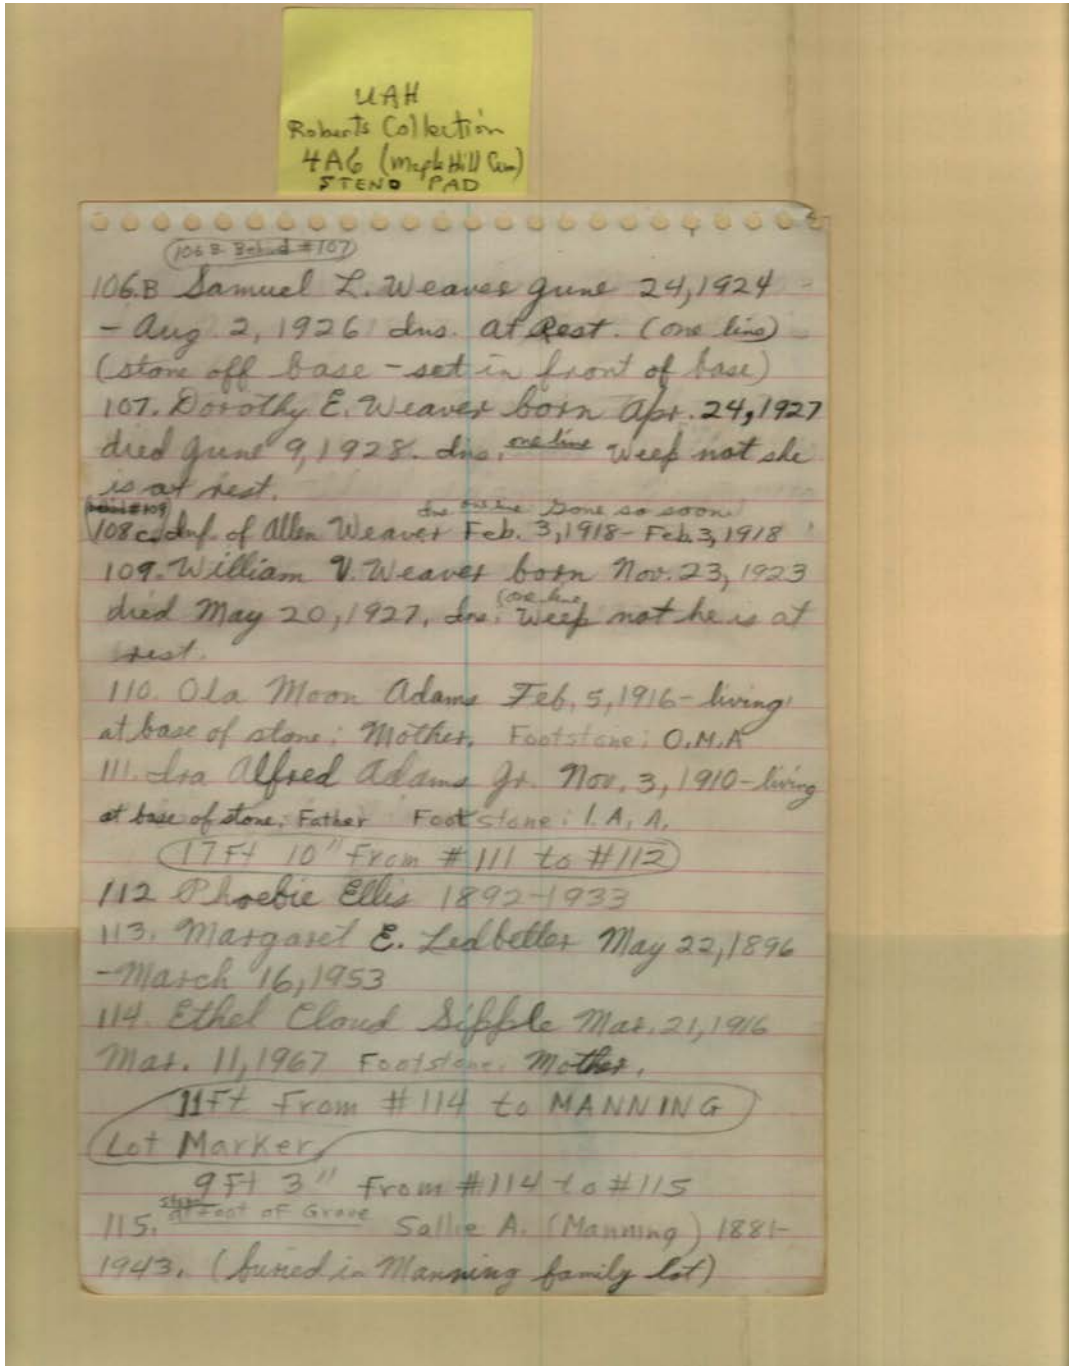 UAH
Roberts Collection
4A6 (Maple Hill Cem)
STENO PAD
106 B Behind #107
106.B Samuel L. Weaver June 24, 1924
- Aug. 2, 1926 Ins. at Rest. (one line)
(stone off base - set in front of base)
107. Dorothy E. Weaver born Apr. 24, 1927
died June 9, 1928. Ins. one line Weep not she
is at rest.
behind #109
Ins one line Gone so soon
108c. Inf. of Allen Weaver Feb. 3, 1918 - Feb. 3, 1918
109. William V. Weaver born Nov. 23, 1923
(one line
died May 20, 1927. Ins. Weep not he is at
rest.
110. Ola Moon Adams Feb. 5, 1916 - living
at base of stone; Mother. Footstone; O.M.A
111. Ira Alfred Adams Jr. Nov. 3, 1910 - living
at base of stone; Father Footstone: I. A. A.
17 Ft 10" From #111 to #112
112 Phoebie Ellis 1892-1933
113. Margaret E. Ledbetter May 22, 1896
- March 16, 1953
114. Ethel Cloud Sipple Mar. 21, 1916
Mar. 11, 1967 Footstone. Mother.
11 Ft From #114 to MANNING
Lot Marker
9 Ft 3" From #114 to #115
stone
at Foot of Grave
115. Sallie A. (Manning) 1881-
1943. (buried in Manning family lot)